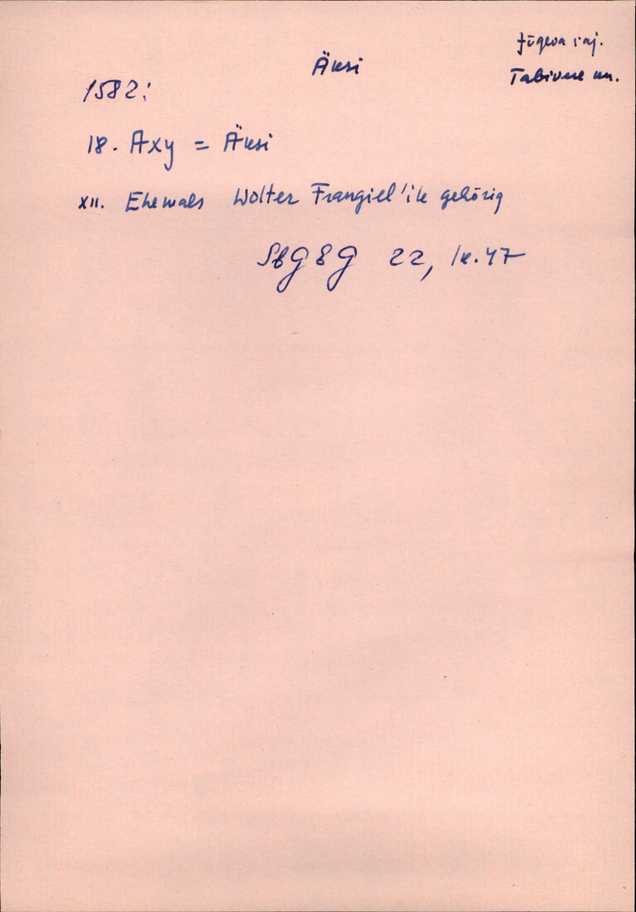 Jõgeva raj.
Äksi
Tabivere kn.
1582:
18. Axy = Äksi
XII. Ehemals Wolter Frangiel'ik gehörig
SbGEG 22, lk. 47